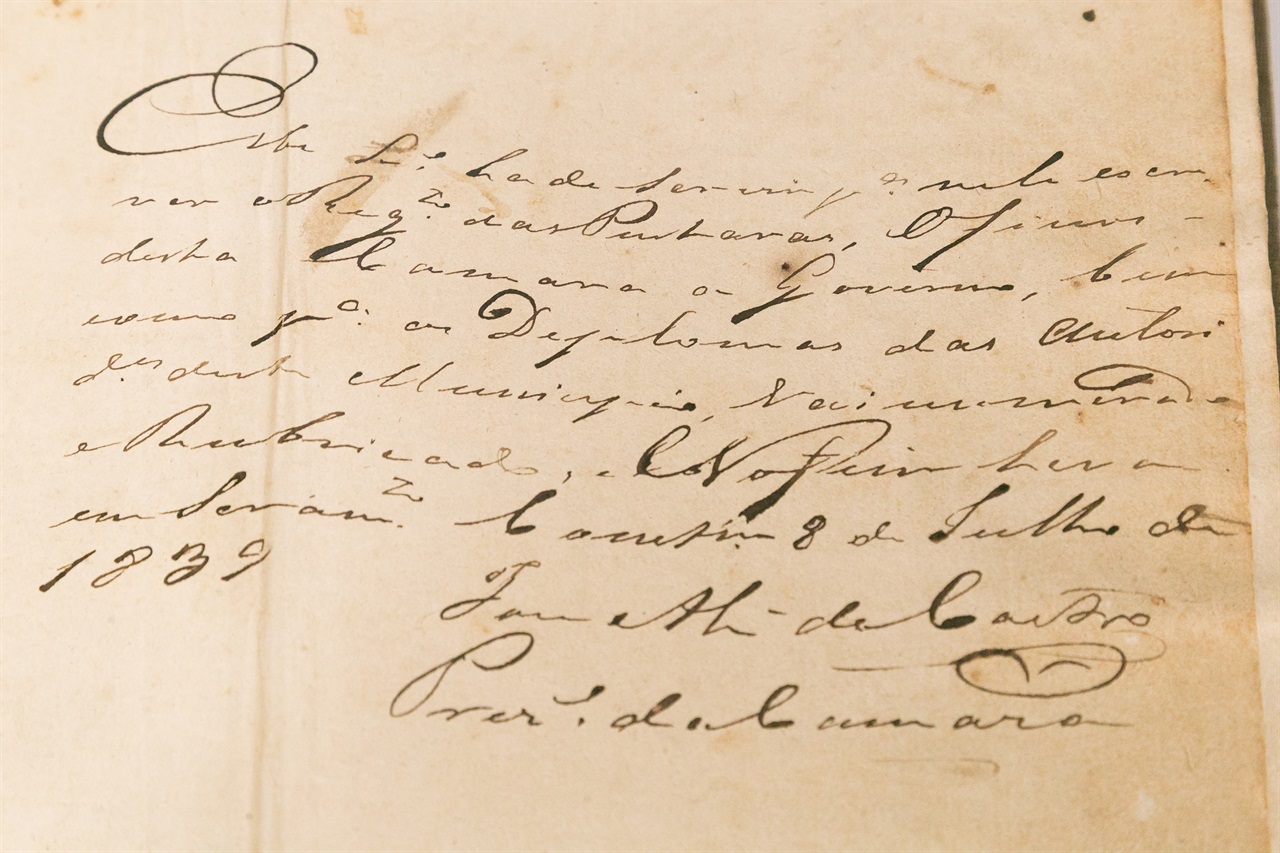 Este L.º hade servir p.ª nele escre
ver o Reg.to das Posturas, Oficios
desta Camara a Governo, bem
como p.ª os Deplomas das Autori
d.es deste Municipio, Vai numerado
e Rubricado, e No Fim leva
em Seram.to 8 de Julho de
1839
de Castro
Prez.e da Camara